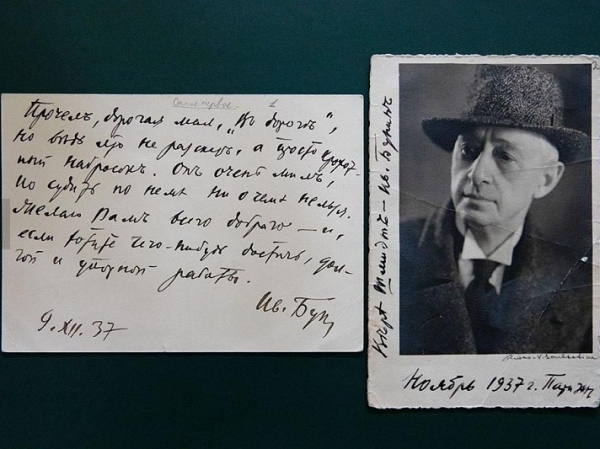 Самое первое. 1
Прочелъ, дорогая моя, „Въ дорогѣ“,
но вѣдь это не разсказъ, а просто крохот-
ный набросокъ. Онъ очень милъ,
но судить по немъ ни о чемъ нельзя.
Желаю Вамъ всего добраго — и,
если хотите чего-нибудь достичь, дол-
гой и упорной работы.
Ив. Бун
9.XII.37
Шмидтъ — Ив. Бунинъ
Ноябрь 1937 г. Парижъ